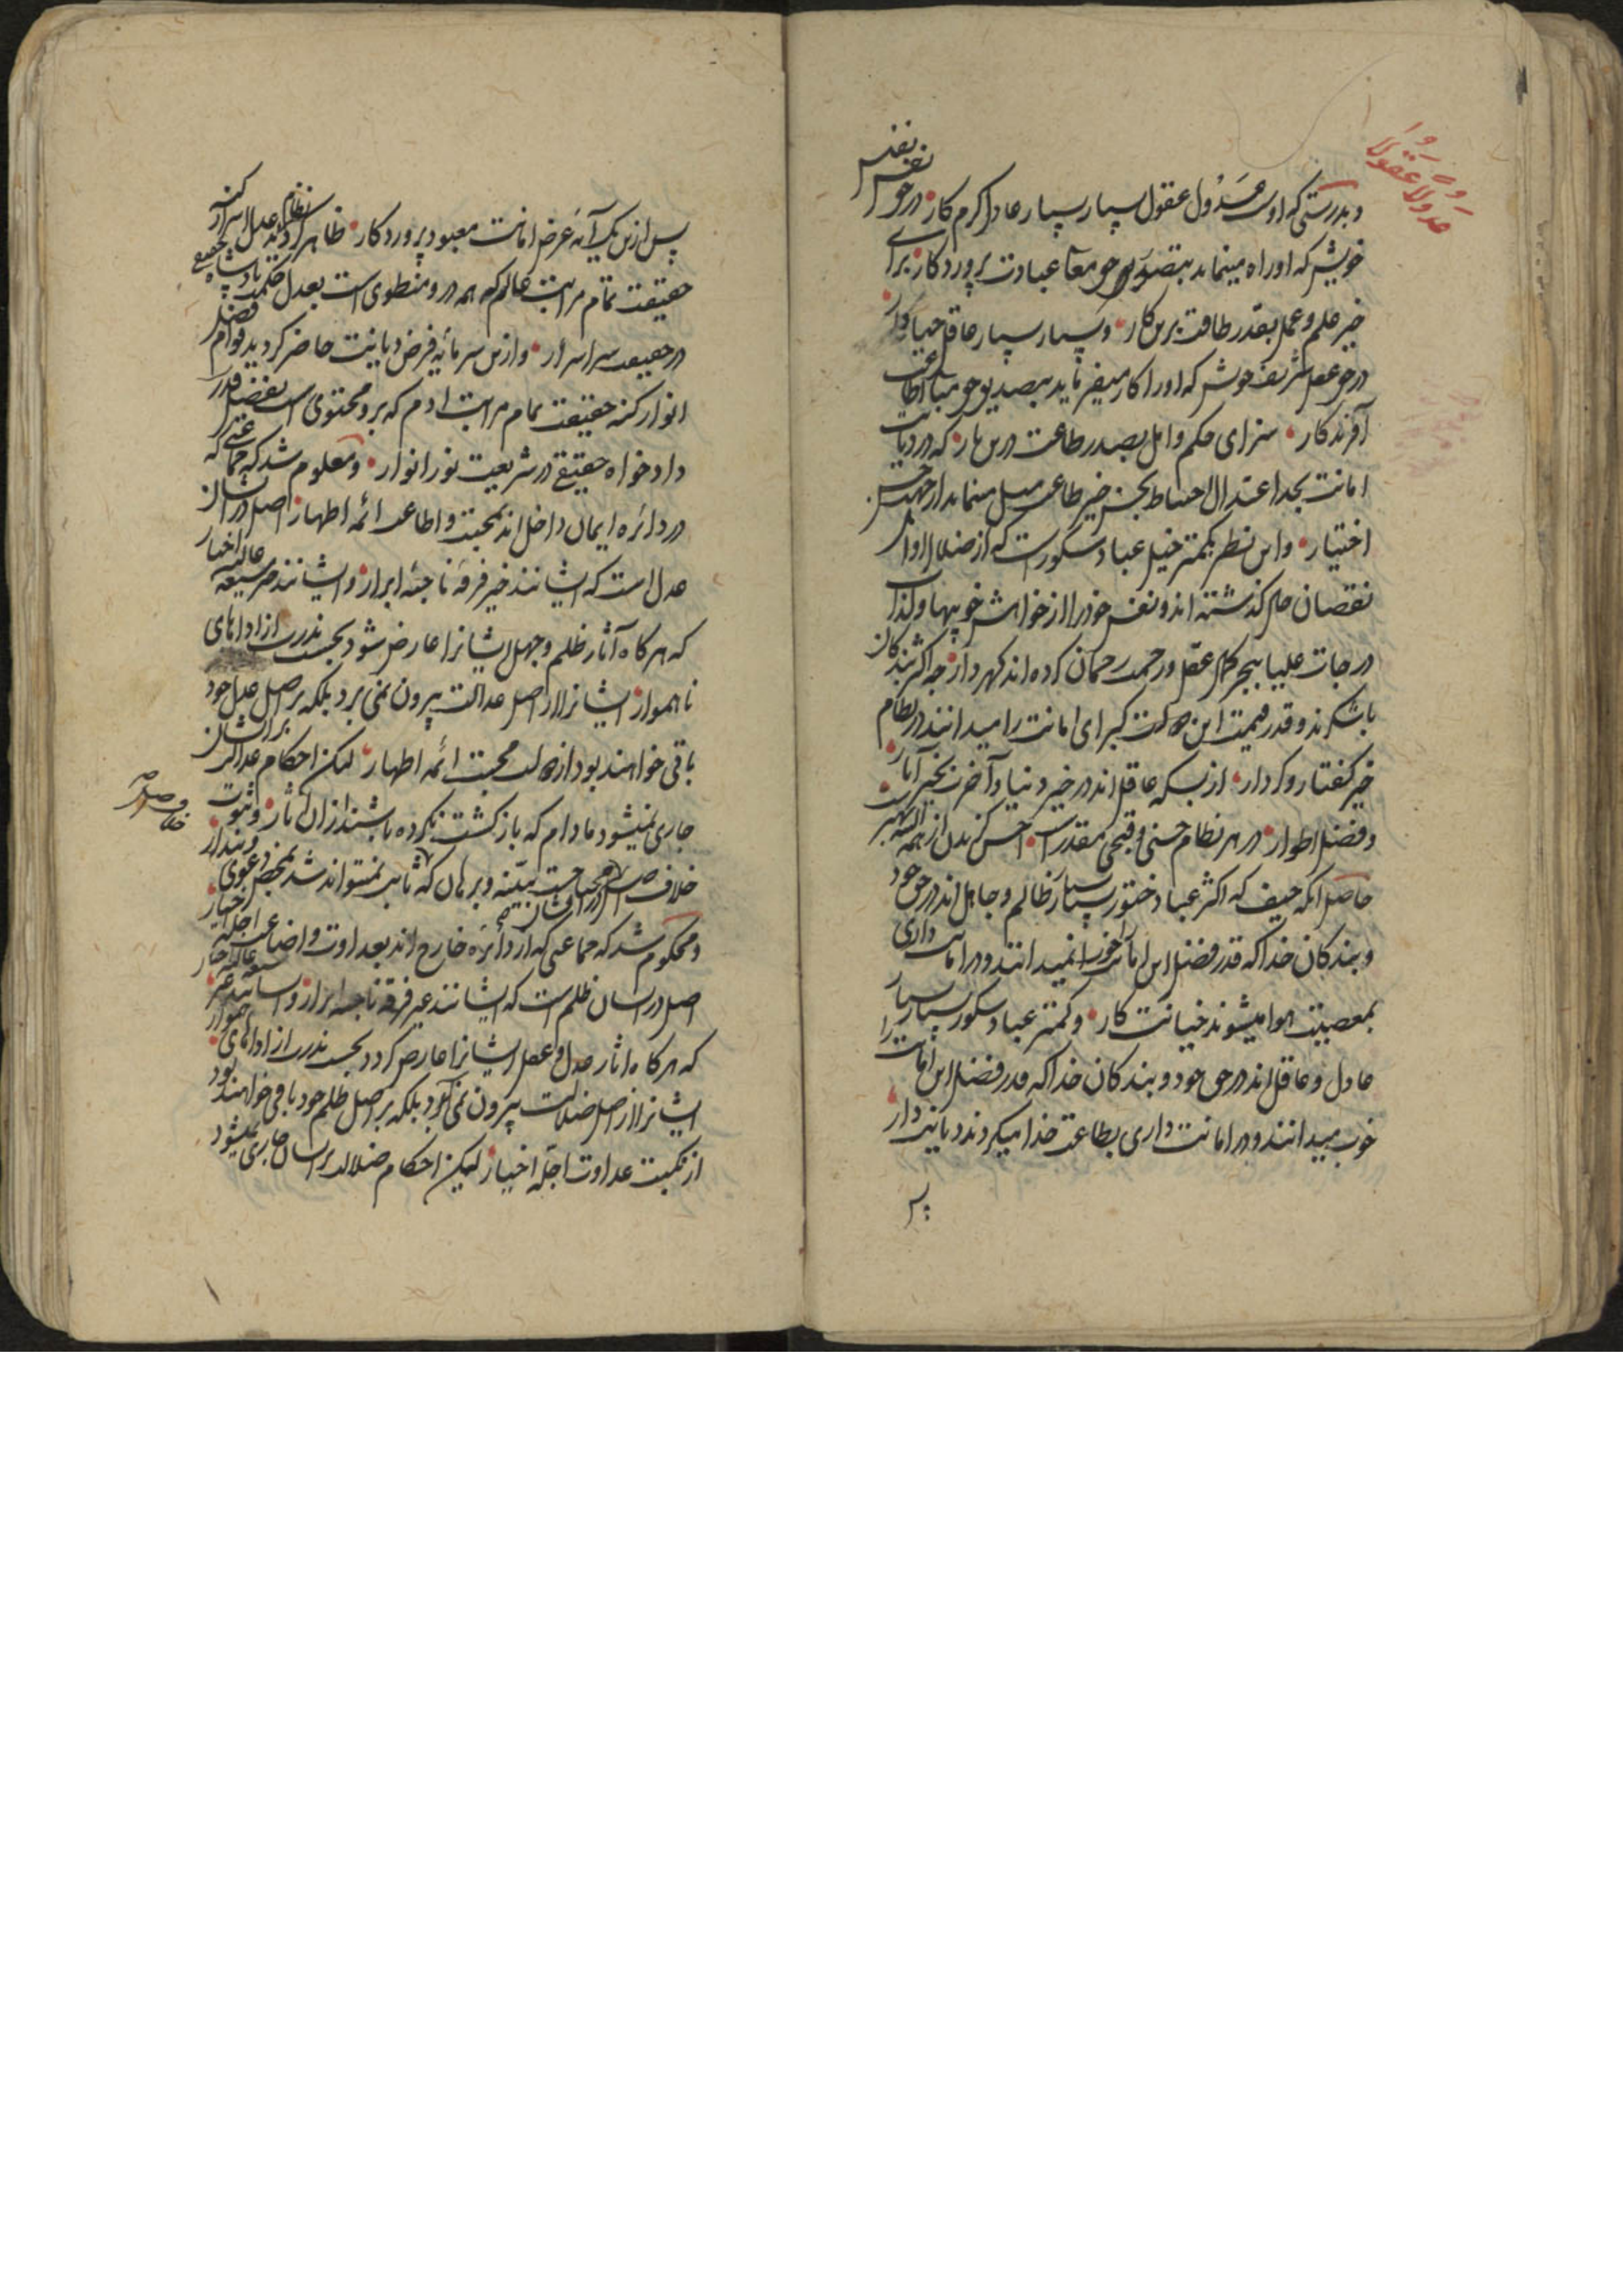 عدولاً عقولاً
و بدرستی که اوست عدول عقول بسیار بسیار عادل کرم کار در حق نفس
خویش که او را راه مینماید بتصدیق حق معا عبادت پروردکار برای
خیر علم و عمل بقدر طاقت برین کار و بسیار بسیار عاقل
در حق عقل شریف خویش که او را کار میفرماید بتصدیق حق
آفرندکار سزای حکم و اهل بصدر طاعت درین بار که در دیانت
امانت بحد اعتدال احتیاط بحسن خیر طاعت میل مینماید از جهت حسن
اختیار و این نظر بکمتر خیل عباد شکورست که از ضلال
نقصان حال کذشته اند و نفس خود را از خواهش خوبیها و لذات
درجات علیا بنجر کمال عقل و رحمت رحمان کرده اند کهردار چه اکثر بندکان
ناشکرند و قدر قیمت این دولت کبرای امانت را میدانند در نظام
خیر کفتار و کردار از بسکه عاقل اند در خیر دنیا و آخرت بخیر آثار
و فضل اطوار در هر نظام حسنی و قبحی مقدرست احسن کن بدل از همه
حاصل آنکه حیف که اکثر عباد ختور بسیار ظالم و جاهل اند در حق خود
و بندکان خدا که قدر فضل این امانت را خوب نمیدانند و در امانت داری
بمعصیت هوا میشوند خیانت کار و کمتر عباد شکور بسیار
عادل و عاقل اند در حق خود و بندکان خدا که قدر فضل این امانت را
خوب میدانند و در امانت داری بطاعت خدا میکردند دیانت دار
پس
پس ازین یک آیه عرض امانت معبود پروردکار ظاهر کردید نظام عدل اسرار کنه
حقیقت تمام مراتب عالم که همه درو منطوی است بعدل حکمت پادشاه حقیقی
در حقیقت سر اسرار و ازین سرمایه فرض دیانت حاضر کردید قوام فضل
انوار کنه حقیقت تمام مراتب آدم که برو محتوی است بفضل قدرت
دادخواه حقیقی در شریعت نور انوار و معلوم شد که جماعتی که
در دائره ایمان داخل اند بمحبت و اطاعت ائمه اطهار اصل در ایشان
عدل است که ایشانند خیر فرقه ناجیه ابرار و ایشانند خیر شیعه عالیه اخیار
که هر کاه آثار ظلم و جهل ایشانرا عارض شود بحسب ندرت از اداهای
ناهموار ایشانرا از اصل عدالت بیرون نمی برد بلکه بر اصل عدل خود
باقی خواهند بود از دولت محبت ائمه اطهار لیکن احکام عدالت بر ایشان
جاری نمیشود مادام که باز کشت نکرده باشند از ان آثار و ثبوت
خلاف اصل در ایشان محتاجست ببینه و برهان که ثابت نمیتواند شد بمحض دعوی و پندار
خلاف اصل
و محکوم شد که جماعتی که از دائره خارج اند بعداوت و اضاعت اجله اخیار
اصل در ایشان ظلم است که ایشانند غیر فرقه ناجیه ابرار و ایشانند غیر شیعه عالیه اخیار
که هر کاه اثار عدل و عقل ایشانرا عارض کردد بحسب ندرت از اداهای هموار
ایشانرا از اصل ضلالت بیرون نمی آورد بلکه بر اصل ظلم خود باقی خواهند بود
از نکبت عداوت اجله اخیار لیکن احکام ضلالت بر ایشان جاری نمیشود